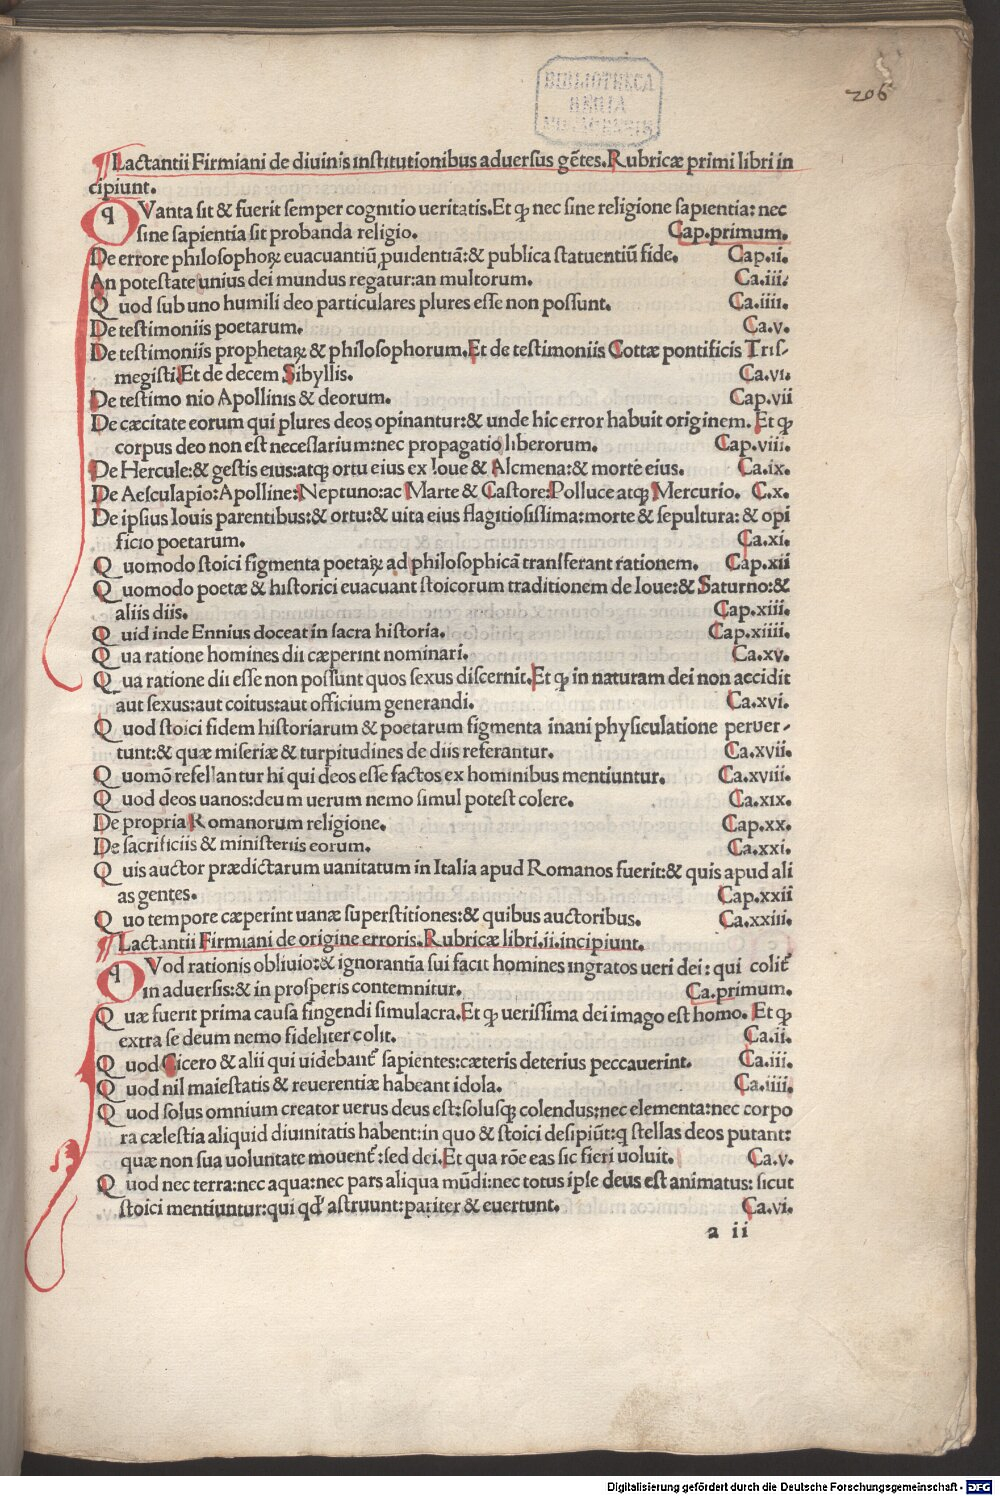 BIBLIOTHECA
REGIA
MONACENSIS
206
¶Lactantii Firmiani de diuinis institutionibus aduersus gẽtes.Rubricæ primi libri in
cipiunt.
qVanta sit & fuerit semper cognitio ueritatis.Et ꝙ nec sine religione sapientia: nec
sine sapientia sit probanda religio. Cap.primum.
De errore philosophoꝝ euacuantiũ ꝓuidentiã:& publica statuentiũ fide. Cap.ii.
An potestate unius dei mundus regatur:an multorum. Ca.iii.
Quod sub uno humili deo particulares plures esse non possunt. Ca.iiii.
De testimoniis poetarum. Ca.v.
De testimoniis prophetaꝝ & philosophorum.Et de testimoniis Cottæ pontificis Tris-
megisti.Et de decem Sibyllis. Ca.vi.
De testimo nio Apollinis & deorum. Cap.vii
De cæcitate eorum qui plures deos opinantur:& unde hic error habuit originem. Et ꝙ
corpus deo non est necessarium:nec propagatio liberorum. Cap.viii.
De Hercule:& gestis eius:atqꝫ ortu eius ex Ioue & Alcmena:& morte eius. Ca.ix.
De Aesculapio:Apolline:Neptuno:ac Marte & Castore:Polluce atqꝫ Mercurio. C.x.
De ipsius Iouis parentibus:& ortu:& uita eius flagitiosissima:morte & sepultura: & opi
ficio poetarum. Ca.xi.
Quomodo stoici figmenta poetaꝝ ad philosophicã transferant rationem. Cap.xii
Quomodo poetæ & historici euacuant stoicorum traditionem de Ioue:& Saturno:&
aliis diis. Cap.xiii.
Quid inde Ennius doceat in sacra historia. Cap.xiiii.
Qua ratione homines dii cæperint nominari. Ca.xv.
Qua ratione dii esse non possunt quos sexus discernit.Et ꝙ in naturam dei non accidit
aut sexus:aut coitus:aut officium generandi. Ca.xvi.
Quod stoici fidem historiarum & poetarum figmenta inani physiculatione peruer-
tunt:& quæ miseriæ & turpitudines de diis referantur. Ca.xvii.
Quomõ refellantur hi qui deos esse factos ex hominibus mentiuntur. Ca.xviii.
Quod deos uanos:deum uerum nemo simul potest colere. Ca.xix.
De propria Romanorum religione. Cap.xx.
De sacrificiis & ministeriis eorum. Ca.xxi.
Quis auctor prædictarum uanitatum in Italia apud Romanos fuerit:& quis apud ali
as gentes. Cap.xxii
Quo tempore cæperint uanæ superstitiones:& quibus auctoribus. Ca.xxiii.
¶Lactantii Firmiani de origine erroris.Rubricæ libri.ii.incipiunt.
qVod rationis obliuio:& ignorantia sui facit homines ingratos ueri dei: qui colit᷑
in aduersis:& in prosperis contemnitur. Ca.primum.
Quæ fuerit prima causa fingendi simulacra.Et ꝙ uerissima dei imago est homo. Et ꝙ
extra se deum nemo fideliter colit. Ca.ii.
Quod Cicero & alii qui uidebant᷑ sapientes:cæteris deterius peccauerint. Ca.iii.
Quod nil maiestatis & reuerentiæ habeant idola. Ca.iiii.
Quod solus omnium creator uerus deus est:solusqꝫ colendus:nec elementa:nec corpo
ra cælestia aliquid diuinitatis habent:in quo & stoici desipiũt:q stellas deos putant:
quæ non sua uoluntate mouent᷑:sed dei.Et qua rõe eas sic fieri uoluit. Ca.v.
Quod nec terra:nec aqua:nec pars aliqua mũdi:nec totus ipse deus est animatus: sicut
stoici mentiuntur:qui qđ astruunt:pariter & euertunt. Ca.vi.
a ii
Digitalisierung gefördert durch die Deutsche Forschungsgemeinschaft - DFG